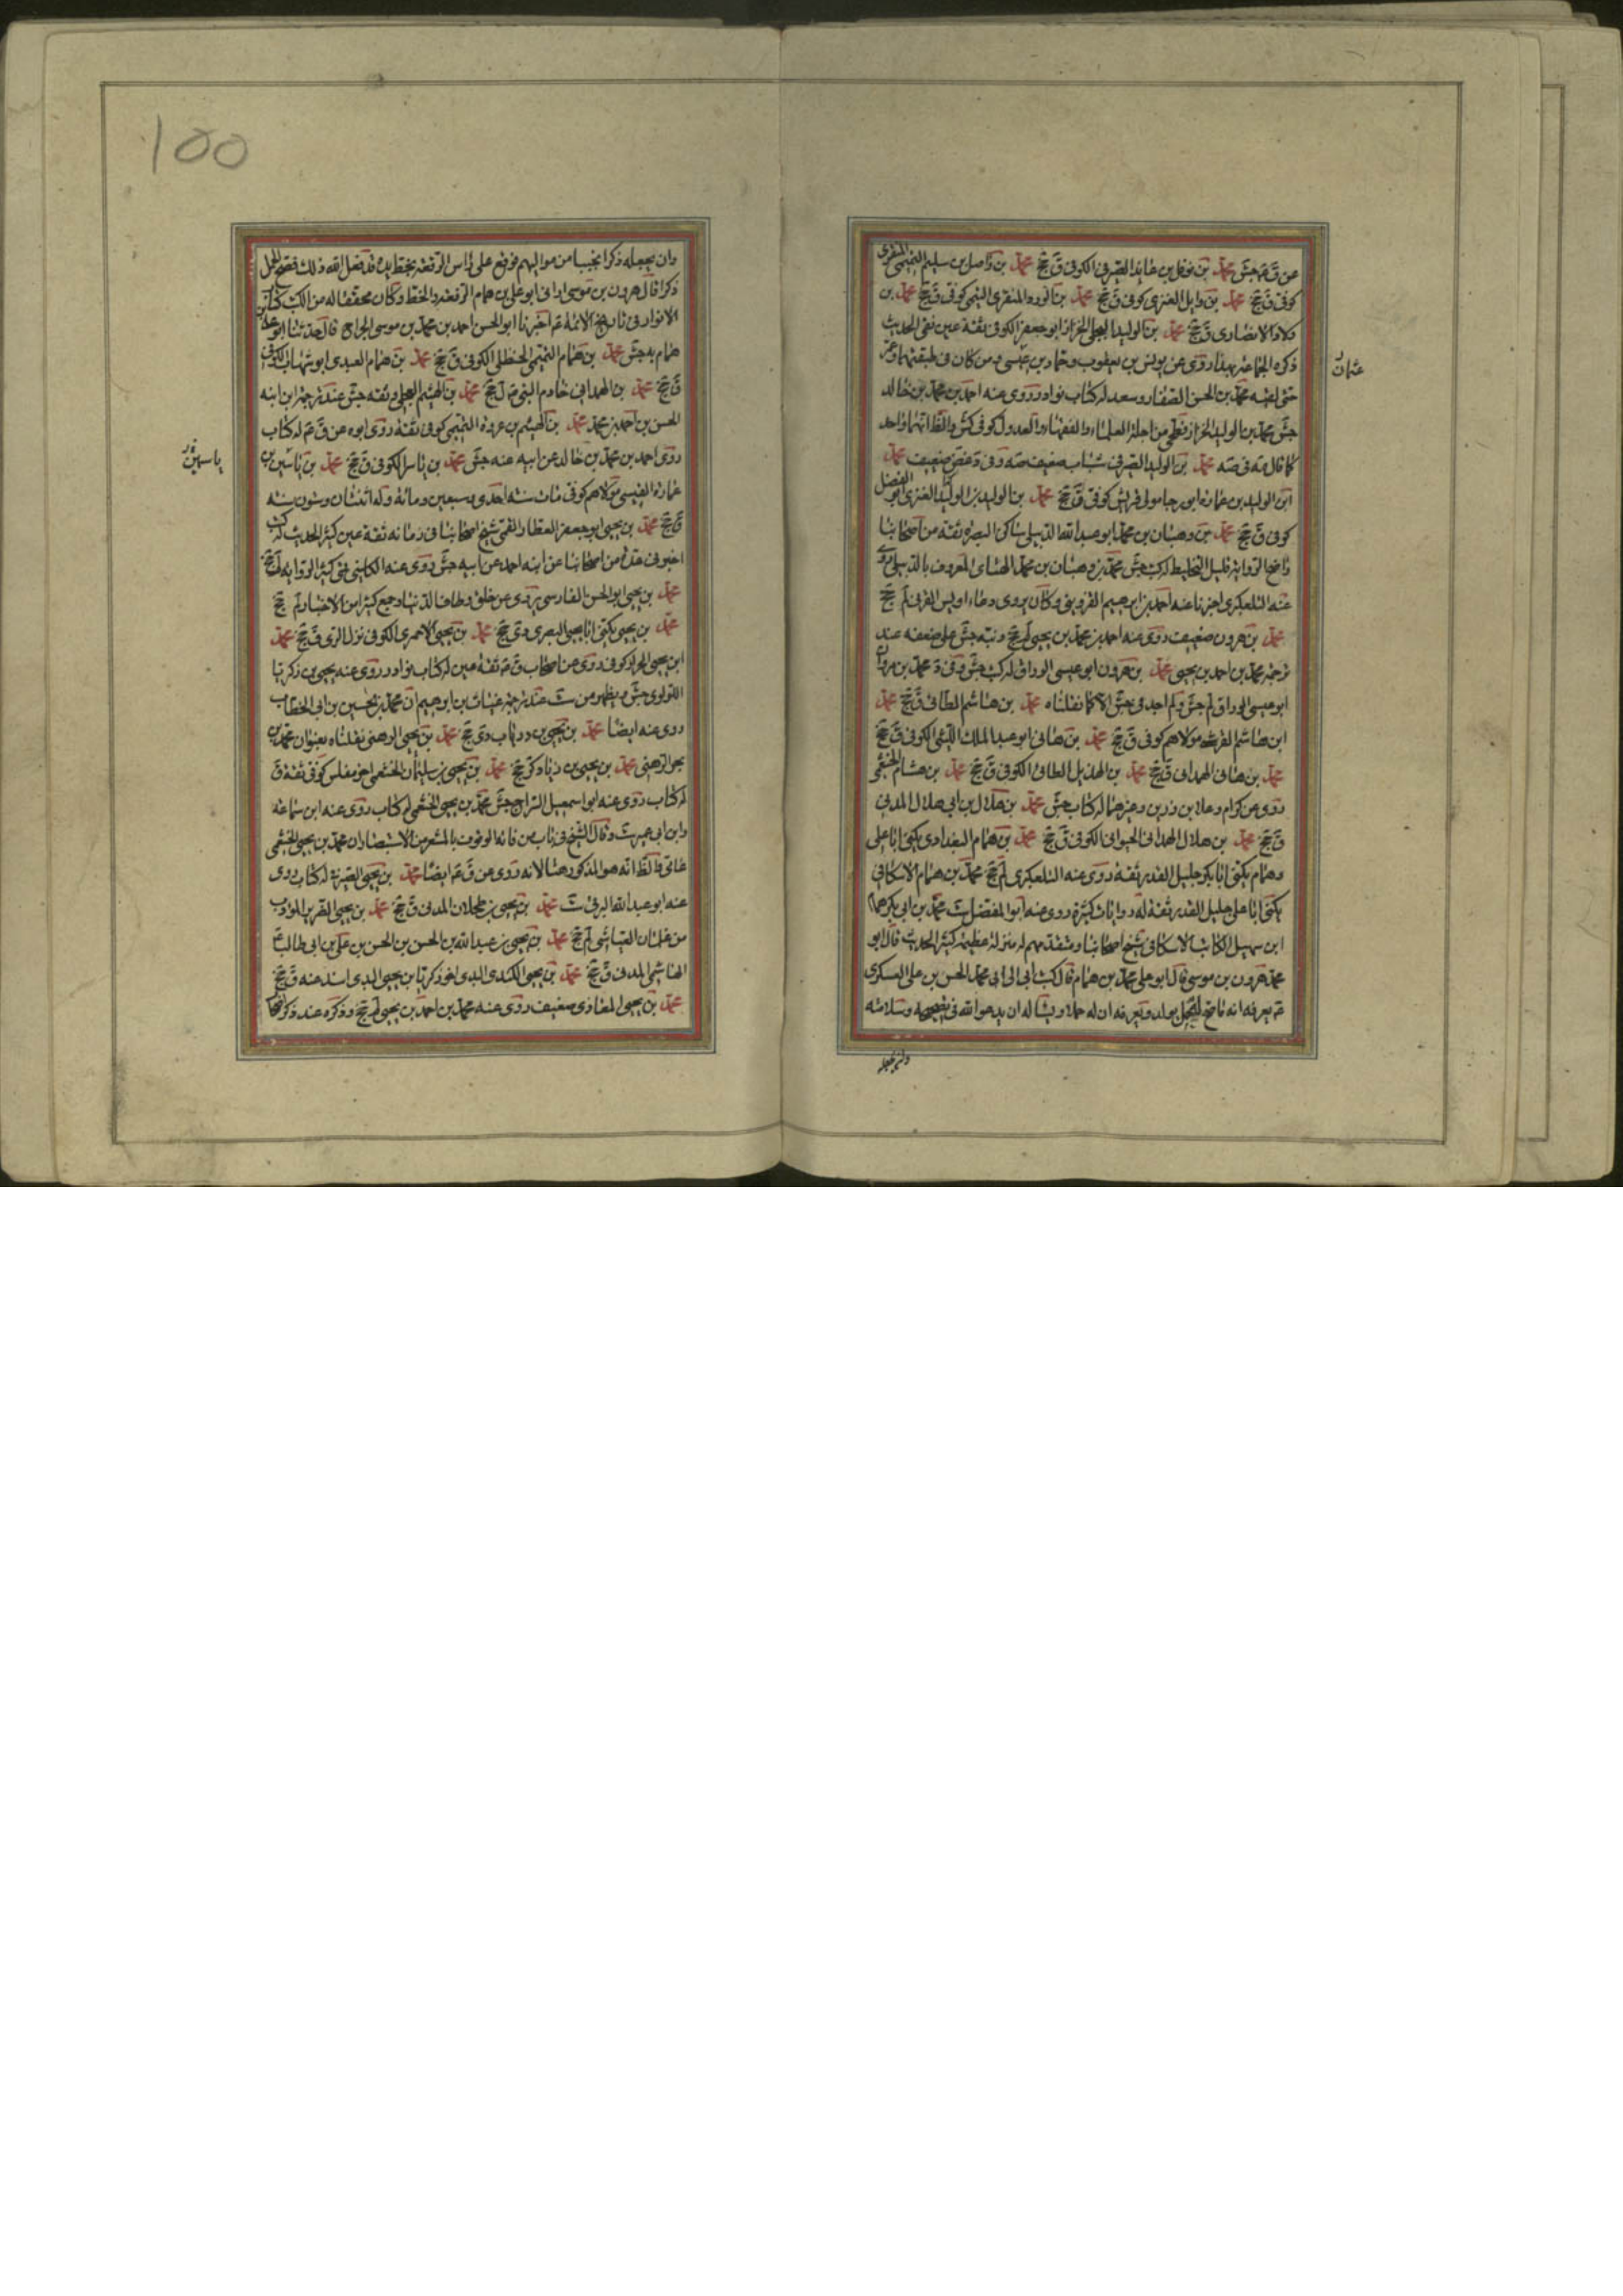 عن ق م جش محمد بن نوفل بن عائذ الصيرفي الكوفي ق جخ محمد بن واصل بن سليم التميمي المنقري
كوفي ق جخ محمد بن وايل العنزي كوفي ق جخ محمد بن الورد المنقري التيمي كوفي ق جخ محمد بن
ولاد الانصاري ق جخ محمد بن الوليد البجلي الخزاز ابو جعفر الكوفي ثقة عين نقي الحديث
ذكره الجماعة بهذا روى عن يونس بن يعقوب وحماد بن عيسى ومن كان في طبقتهما وعمر
عثمان
حتى لقيه محمد بن الحسن الصفار وسعد له كتاب نوادر روى عنه احمد بن محمد بن خالد
جش محمد بن الوليد الخزاز فطحي من اجلة العلماء والفقهاء والعدول كوفي كش والظ انهما واحد
كما قال في صه محمد بن الوليد الصيرفي شباب ضعيف صه وفي غض ضعيف محمد
ابن الوليد بن عمارة ابو رجا مولى قريش كوفي ق جخ محمد بن الوليد بن الوليد العنزي ابو الفضل
كوفي ق جخ محمد بن وهبان بن محمد ابو عبد الله الدبيلي ساكن البصرة ثقة من اصحابنا
واضح الرواية قليل التخليط له كتب جش محمد بن وهبان بن محمد الهناي المعروف بالدبيلي روى
عنه التلعكبري اخبرنا عنه احمد بن ابرهيم القزويني وكان يروي دعاء اويس القرني لم جخ
محمد بن هرون ضعيف روى عنه احمد بن محمد بن يحيى لم جخ ونبه جش على ضعفه عند
ترجمة محمد بن احمد بن يحيى محمد بن هرون ابو عيسى الوراق له كتب جش وفي د محمد بن مروان
ابو عيسى الوراق لم جش ولم اجد في جش الا كما نقلناه محمد بن هاشم الطائي ق جخ محمد
ابن هاشم القرشي مولاهم كوفي ق جخ محمد بن هاني ابو عبد الملك الكوفي ق جخ
محمد بن هاني الهمداني ق جخ محمد بن الهذيل الطائي الكوفي ق جخ محمد بن هشام الخثعمي
روى عن كرام وعلا بن رزين وغيرهما له كتاب جش محمد بن هلال بن ابي هلال المدني
ق جخ محمد بن هلال الهمداني الحيواني الكوفي ق جخ محمد بن همام البغدادي يكنى ابا علي
وهمام يكنى ابا بكر جليل القدر ثقة روى عنه التلعكبري لم جخ محمد بن همام الاسكافي
يكنى ابا علي جليل القدر ثقة له روايات كثيرة روى عنه ابو المفضل ست محمد بن ابي بكر همام
ابن سهيل الكاتب الاسكافي شيخ اصحابنا ومتقدمهم له منزلة عظيمة كثير الحديث قال ابو
محمد هرون بن موسى قال ابو علي محمد بن همام قال كتب ابي الى ابي محمد الحسن بن علي العسكري
ع يعرفه انه ما صح له حمل بولد ويعرفه ان له حملا ويسأله ان يدعو الله في تصحيحه وسلامته
وان يجعله
100
وان يجعله ذكرا نجيبا من مواليهم فوقع على راس الرقعة بخط يده قد فعل الله ذلك فصح الحمل
ذكرا قال هرون بن موسى اراني ابو علي بن همام الرقعة والخط وكان محققا له من الكتب كتاب
الانوار في تاريخ الائمة ع اخبرنا ابو الحسن احمد بن محمد بن موسى الجراح قال حدثنا ابو علي
همام به جش محمد بن همام التميمي الحنظلي الكوفي ق جخ محمد بن همام العبدي ابو شهاب الكوفي
ق جخ محمد بن الهمداني خادم النبي ص ل جخ محمد بن الهيثم العجلي ثقه جش عند ترجمة ابن ابنه
الحسن بن احمد بن محمد محمد بن الهيثم بن عروة التميمي كوفي ثقة روى ابوه عن ق ع له كتاب
روى احمد بن محمد بن خالد عن ابيه عنه جش محمد بن ياسر الكوفي ق جخ محمد بن ياسين بن
ياسين
عمارة القيسي مولاهم كوفي مات سنه احدى وسبعين ومائة وله اثنتان وستون سنه
ق جخ محمد بن يحيى ابو جعفر العطار القمي شيخ اصحابنا في زمانه ثقة عين كثير الحديث له كتب
اخبرني عدة من اصحابنا عن ابنه احمد عن ابيه جش روى عنه الكليني قمي كثير الرواية لم جخ
محمد بن يحيى ابو الحسن الفارسي يروي عن خلق وطاف الدنيا وجمع كثيرا من الاخبار لم جخ
محمد بن يحيى يكنى ابا يحيى البصري دي جخ محمد بن يحيى الاحمري الكوفي نزل الري ق جخ محمد
ابن يحيى الخزاز كوفي روى عن اصحاب ق ع ثقة عين له كتاب نوادر روى عنه يحيى بن زكريا
اللؤلؤي جش ويظهر من ست عند ترجمة غياث بن ابرهيم ان محمد بن الحسين بن ابي الخطاب
روى عنه ايضا محمد بن يحيى بن درياب دي جخ محمد بن يحيى الرهني نقلناه بعنوان محمد بن
بحر الرهني محمد بن يحيى بن زياد كر جخ محمد بن يحيى بن سليمان الخثعمي اخو مغلس كوفي ثقة ق
له كتاب روى عنه ابو اسمعيل السراج جش محمد بن يحيى الخثعمي له كتاب روى عنه ابن سماعة
وابن ابي عمير ست وقال الشيخ في باب من فاته الوقوف بالمشعر من الاستبصار ان محمد بن يحيى الخثعمي
عامي والظ انه هو المذكور هنا لانه روى عن ق ع ايضا محمد بن يحيى الصيرفي له كتاب روى
عنه ابو عبد الله البرقي ست محمد بن يحيى بن طحلان المدني ق جخ محمد بن يحيى الضرير المؤدب
من غلمان العياشي لم جخ محمد بن يحيى بن عبد الله بن الحسن بن الحسن بن علي بن ابي طالب ع
الهاشمي المدني ق جخ محمد بن يحيى الكندي البدي اخو زكريا بن يحيى البدي اسند عنه ق جخ
محمد بن يحيى المعاذي ضعيف روى عنه محمد بن احمد بن يحيى لم جخ وذكره عند ذكر